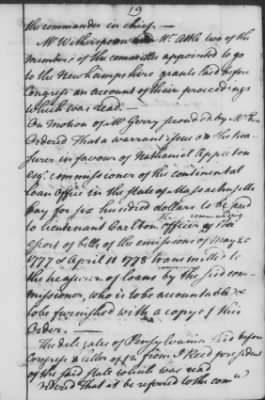 19
the commander in chief.
Mr Witherspoon Mr Atlee two of the
members of the committee appointed to go
to the New hampshire grants laid before
Congress an account of their proceedings
which was read.
On Motion of Mr Gerry seconded by Mr
Ordered That a warrant issue on the trea
surer in favour of Nathaniel Appleton
esqr commissioner of the continental
Loan Office in the State of Massachusetts
bay for six hundred dollars to be paid
to lieutenant Carlton the officer commanding
escort of bills of the emissions of May 20
1777 & April 11 1778 transmitted to
the treasurer of loans by the said com
missioner, who is to be accountable &
to be furnished with a copy of this
Order.
The delegates of Pensylvania laid before
Congress a letter of 9 from J Reed president
of the said State which was read
Ordered That it be referred to the comee